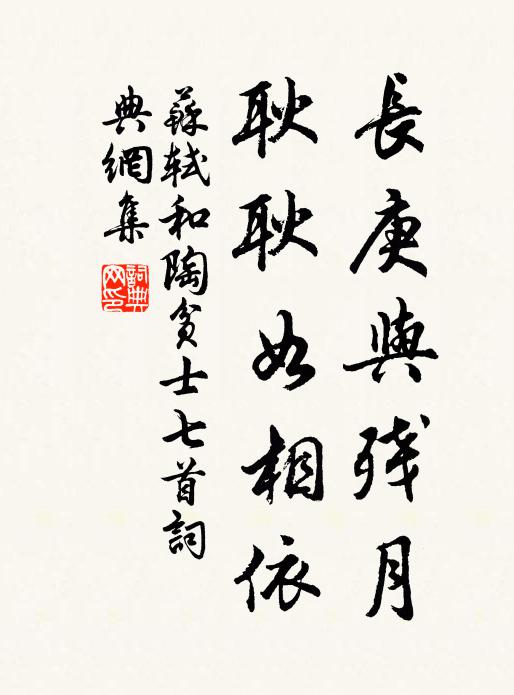 長庚與残月
耿耿如相依
蘇軾和陶貧士七首詞
典網集
詞典网印